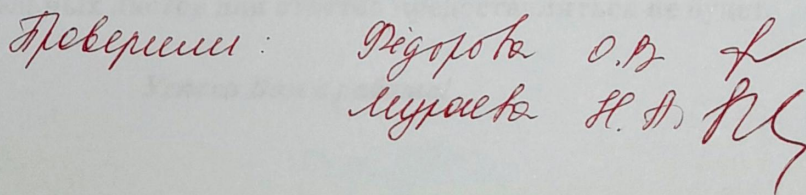 Проверили: Фёдорова О.В
Мураева Н.А.